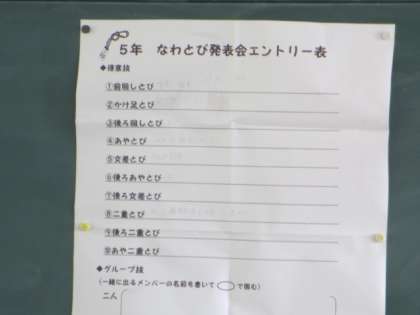 5年 なわとび発表会エントリー表
◆得意技
①前回しとび
②かけ足とび
③後ろ回しとび
④あやとび
⑤交差とび
⑥後ろあやとび
⑦後ろ交差とび
⑧二重とび
⑨後ろ二重とび
⑩あや二重とび
◆グループ技
(一緒に出るメンバーの名前を書いて◯で囲む)
二人